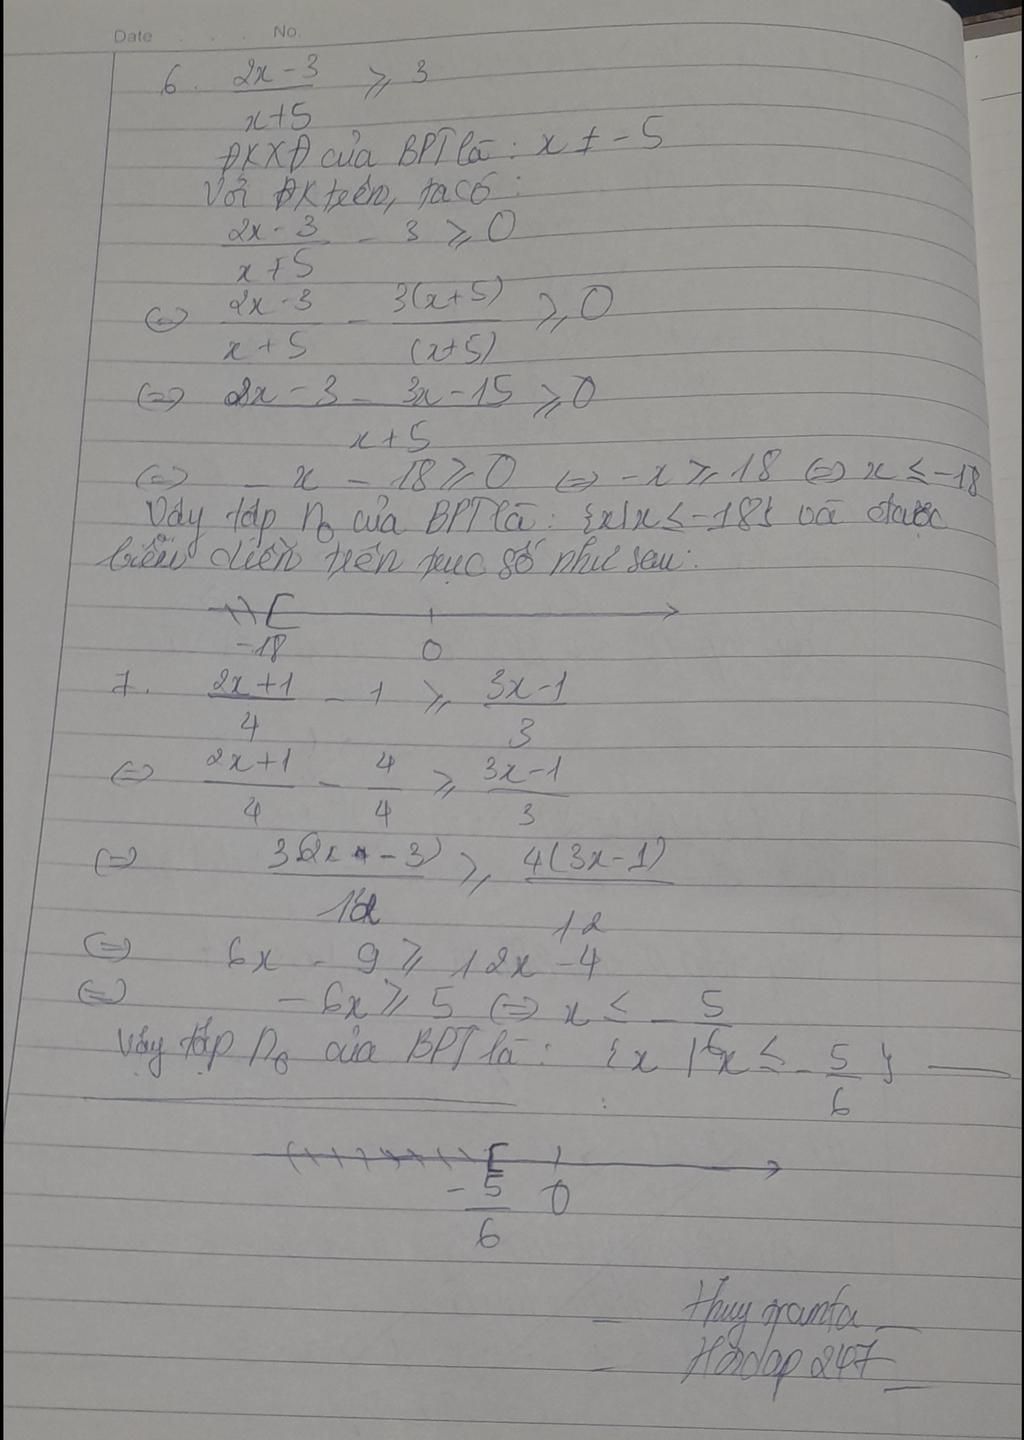 Date . . . No.
6. (2x - 3)/(x+5) ⩾ 3
ĐKXĐ của BPT là : x ≠ - 5
Với ĐK trên, ta có :
(2x - 3)/(x + 5) - 3 ⩾ 0
(=) (2x - 3)/(x + 5) - 3(x+5)/(x+5) ⩾ 0
(=) (2x - 3 - 3x - 15)/(x + 5) ⩾ 0
(=) - x - 18 ⩾ 0 (=) -x ⩾ 18 (=) x ≤ -18
Vậy tập no của BPT là : {x|x ≤ -18} và được
biểu diễn trên trục số như sau :
-18 0
7. (2x + 1)/4 - 1 ⩾ (3x - 1)/3
(=) (2x + 1)/4 - 4/4 ⩾ (3x - 1)/3
(=) 3(2x - 3)/12 ⩾ 4(3x - 1)/12
(=) 6x - 9 ⩾ 12x - 4
(=) - 6x ⩾ 5 (=) x ≤ - 5/6
Vậy tập no của BPT là : {x | x ≤ - 5/6}
- 5/6 0
Hoidap 247